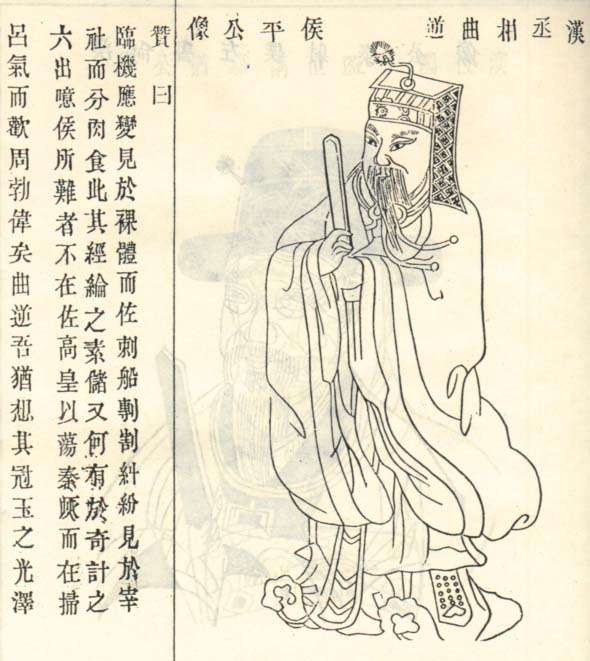 漢丞相曲逆侯平公像
贊曰
臨機應變見於裸體而佐刺船剸割紏紛見於宰
社而分肉食此其經綸之素儲又何有於奇計之
六出噫侯所難者不在佐高皇以蕩秦而在掃
呂氣而歡周勃偉矣曲逆吾猶想其冠玉之光澤